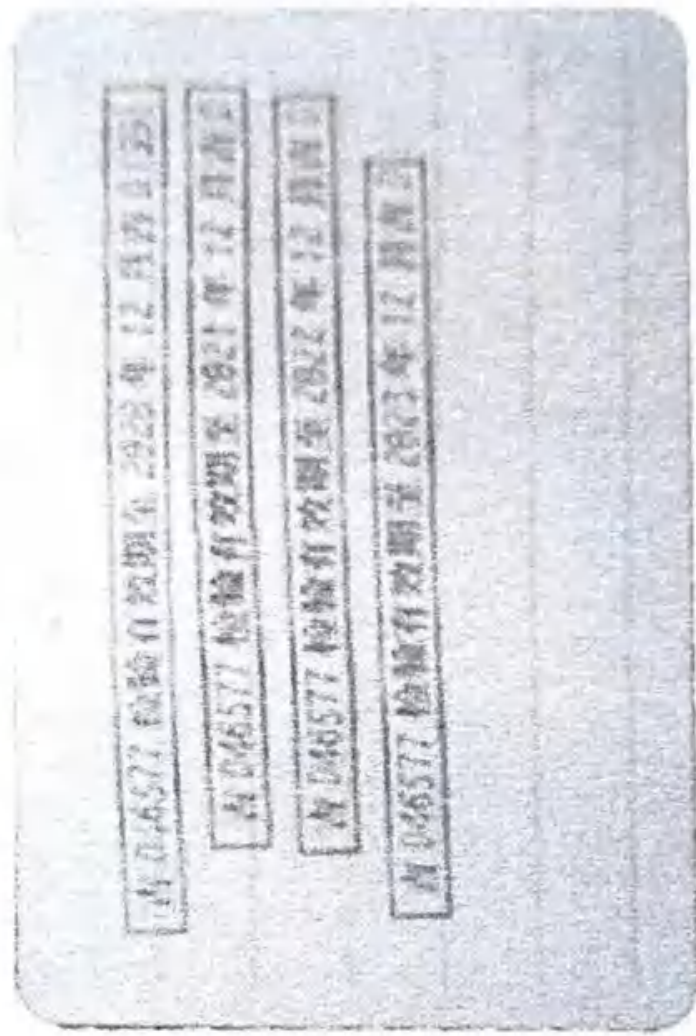 046577 检验有效期至 2020 年 12 月
046577 检验有效期至 2021 年 12 月
046577 检验有效期至 2022 年 12 月
046577 检验有效期至 2023 年 12 月